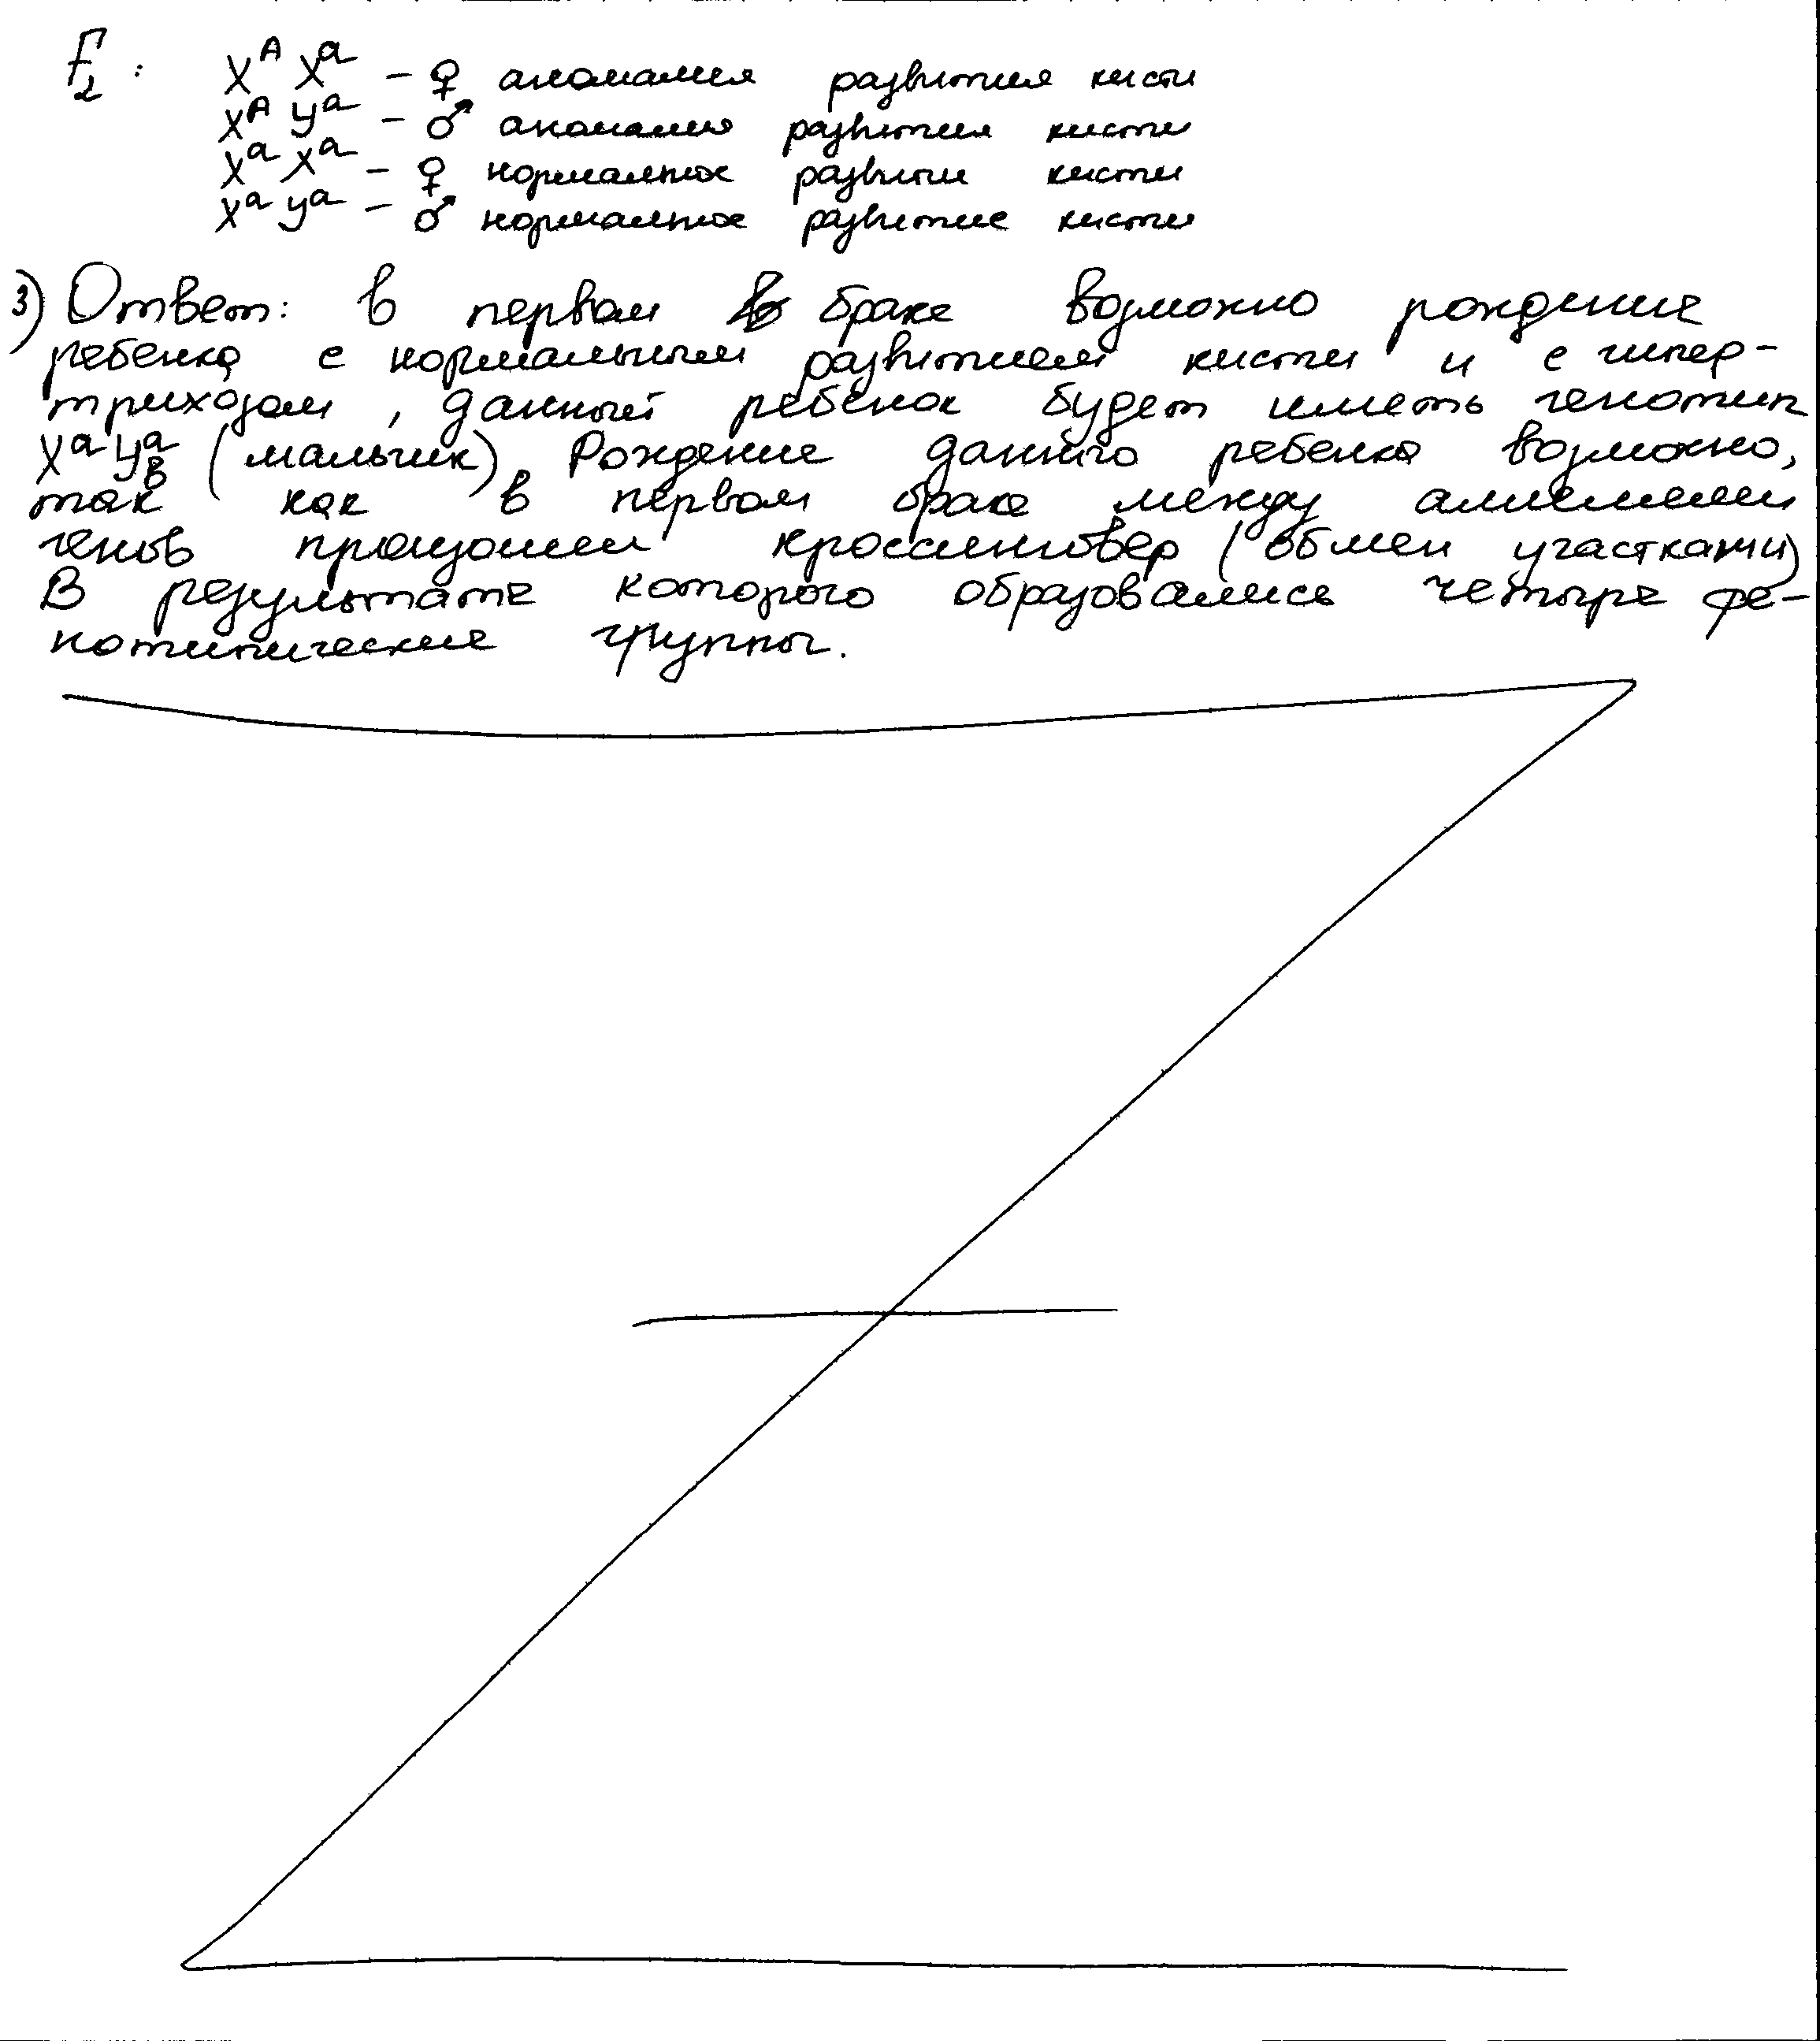 F₂: Xᴬ Xᵃ – ♀ аномалия развития кисти
Xᴬ Yᵃ – ♂ аномалия развития кисти
Xᵃ Xᵃ – ♀ нормальное развити кисти
Xᵃ Yᵃ – ♂ нормальное развитие кисти
3) Ответ: в первом браке возможно рождение
ребенка с нормальным развитием кисти и с гипер-
трихозом, данный ребенок будет иметь генотип
XᵃYᵃв (мальчик). Рождение данного ребенка возможно,
так как в первом браке между аллелями
генов произошел кроссинговер (обмен участками)
В результате которого образовались четыре фе-
нотипические группы.